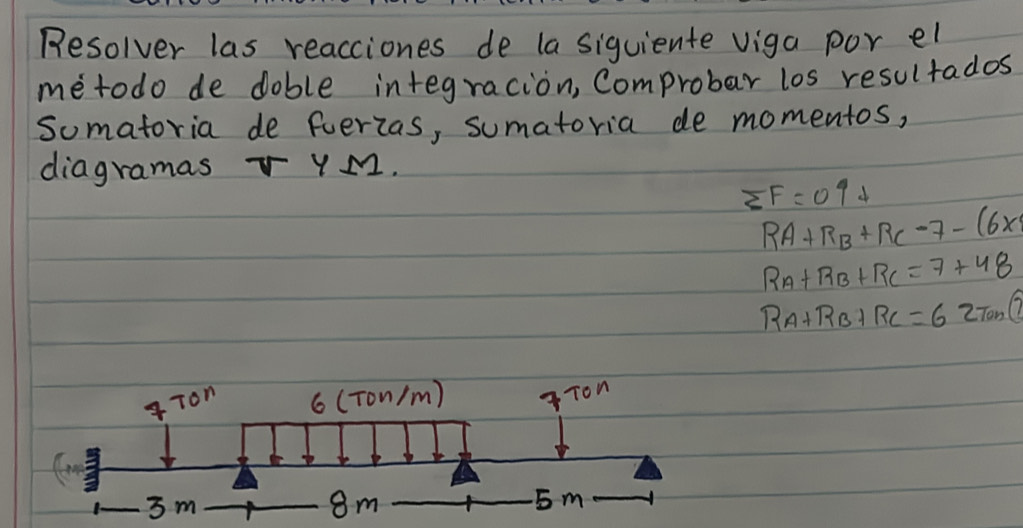 Resolver las reacciones de la siguiente viga por el
método de doble integración, Comprobar los resultados
Sumatoria de fuerzas, sumatoria de momentos,
diagramas V Y M.
ΣF=0↑↓
RA+RB+RC-7-(6x
RA+RB+RC=7+48
RA+RB+RC=62Ton
7 Ton
6 (Ton/m)
7 Ton
3m
8m
5m